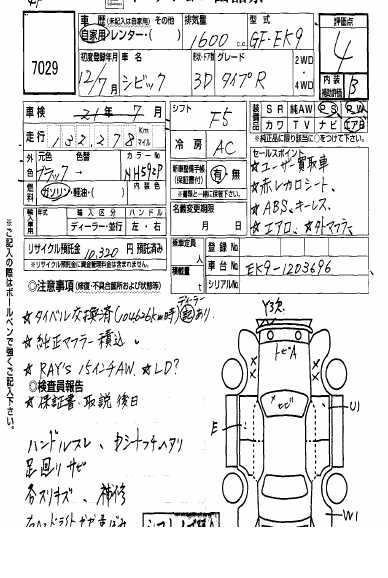 車歴 (未記入は自家用) その他 排気量 型式 評価点
7029 自家用 レンター・( ) 1600 c.c. GF-EK9 4
初度登録年月 車名 グレード 2WD・4WD 内装補助評価 B
12/7月 シビック 3D タイプR
車検 21年7月 シフト F5 装備品 SR 純AW PS PW
カワ TV ナビ エアB
走行 132,278 Km マイル 冷房 AC ★純正品に限り該当に○をつけて下さい
外色 元色 色替 カラーNo 内装色
ブラック NH592P
セールスポイント
★ユーザー買取車
燃料 ガソリン・軽油・( ) (保証書付) 有・無 ★赤レカロシート、
★書類と一緒に保管下さい。
輸入車使用欄 年式 輸入区分 ハンドル
ディーラー・並行 左・右
名義変更期限 月 日
★ABS、キーレス
★エアロ、★社外マフラー
リサイクル預託金 10,320 円 預託済み
※リサイクル預託金に資金管理料金は含まれません。
乗車定員 人 登録No
積載量 t 車台No EK9-1203696
シリアルNo
◎注意事項(修復・不具合箇所および状態等)
★タイベル交換済(104626km時)ディーラー記あり
★純正マフラー積込
★RAY'S 15インチAW ★LD?
◎検査員報告
★保証書、取説 後日
ハンドルスレ、
足回りサビ
各スリキズ、補修
Y3次
トビA
サビ
E
U1
W1
※ご記入の際はボールペンで強くご記入下さい。